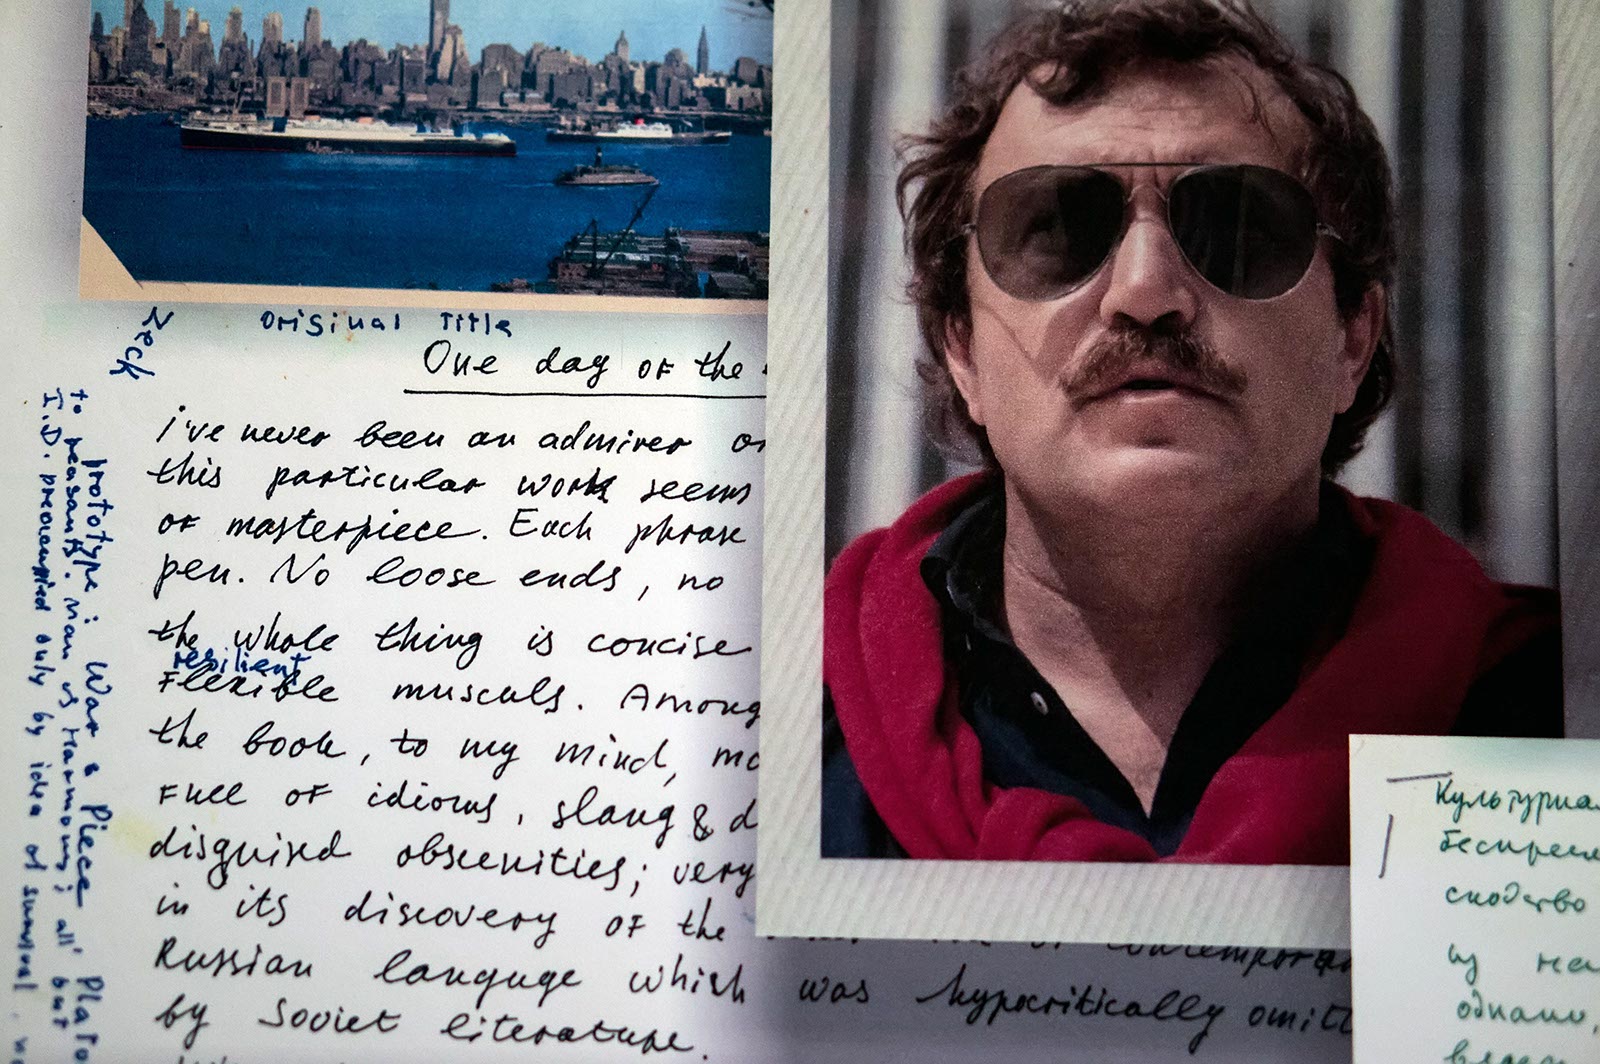 Original Title
Zeck
One day of the
i've never been an admirer
this particular work seems
of masterpiece. Each phrase
pen. No loose ends, no
the whole thing is concise
resilient
Flexible musculs. Among
the book, to my mind,
Full of idioms, slang & d
disguised obscenities; very
in its discovery of the
contemporar
Russian languge which was hypocritically omitt
by Soviet literature.
prototype: War & Piece Plato
to peasants. Ivan is Harmonius; all' but
I.D. preoccupied only by idea of survival.
Культурна
беспрецед
сходство
из на
однако,